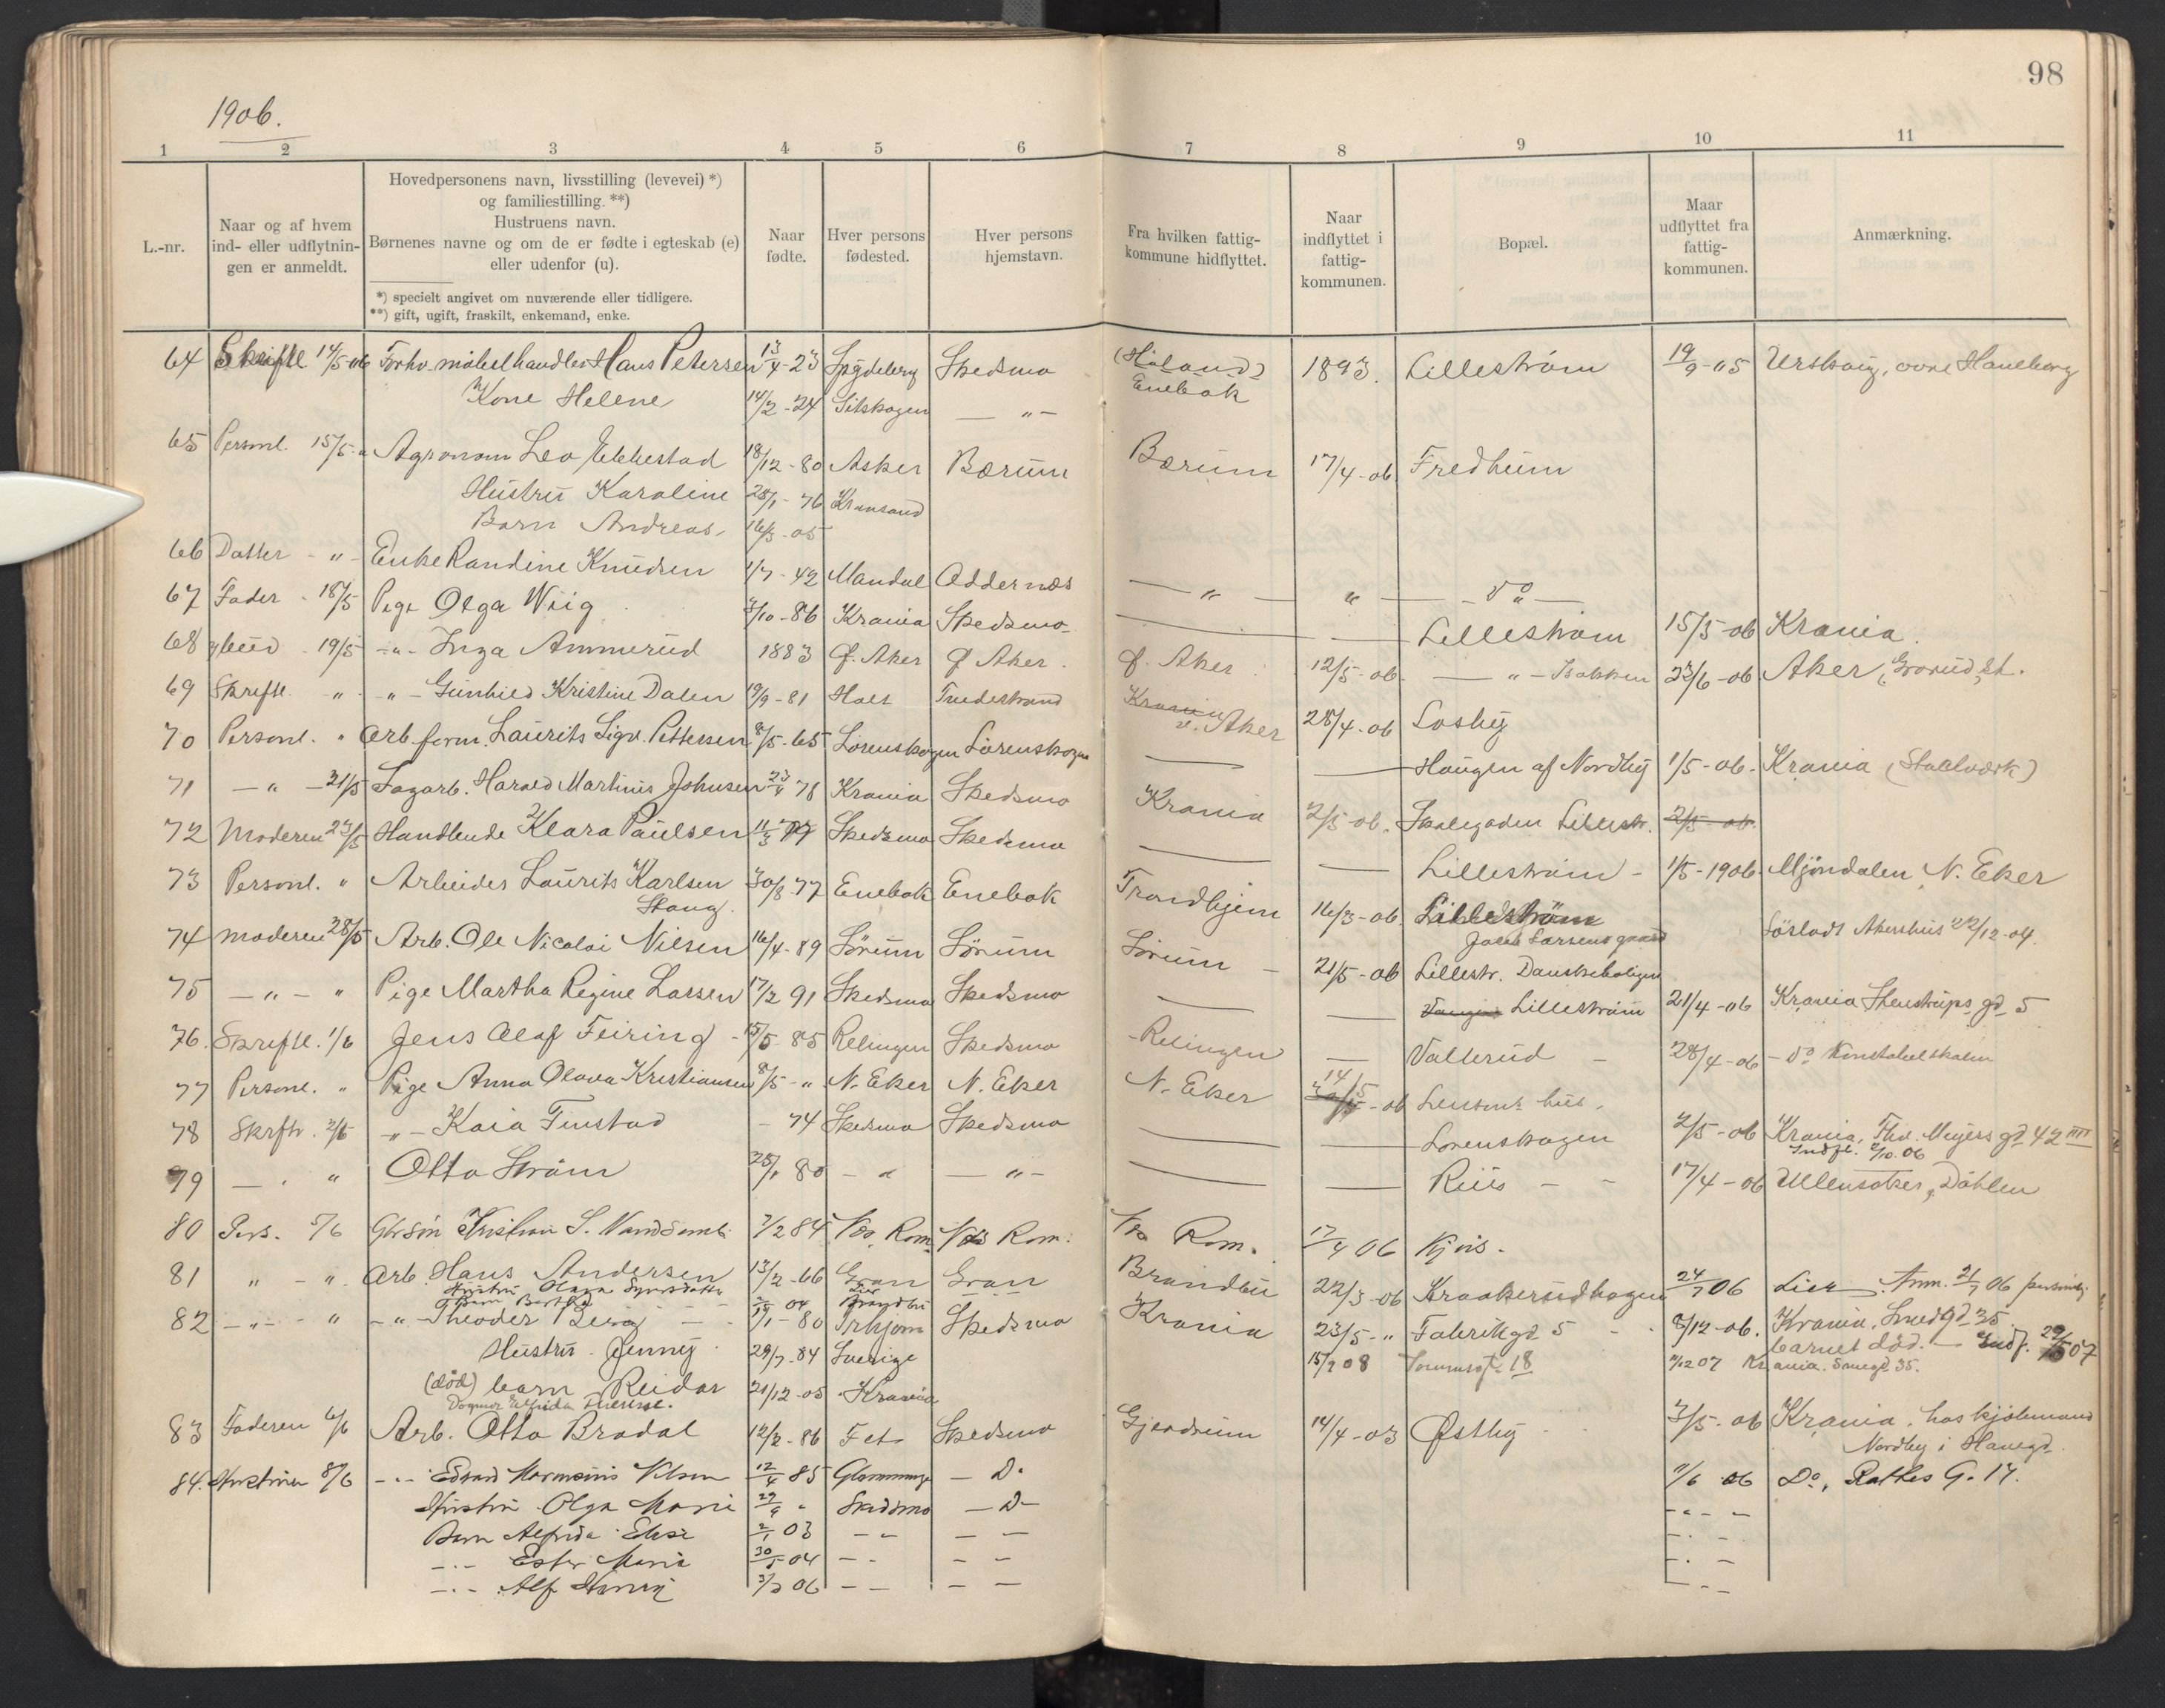 98
1906.
1 2 3 4 5 6 7 8 9 10 11
L.-nr.
Naar og af hvem
ind- eller udflytnin-
gen er anmeldt.
Hovedpersonens navn, livsstilling (levevei) *)
og familiestilling. **)
Hustruens navn.
Børnenes navne og om de er fødte i egteskab (e)
eller udenfor (u).
*) specielt angivet om nuværende eller tidligere.
**) gift, ugift, fraskilt, enkemand, enke.
Naar
fødte.
Hver persons
fødested.
Hver persons
hjemstavn.
Fra hvilken fattig-
kommune hidflyttet.
Naar
indflyttet i
fattig-
kommunen.
Bopæl.
Maar
udflyttet fra
fattig-
kommunen.
Anmærkning.
64 Skriftl 14/5-06 Forhv. møbelhandler Hans Petersen 13/4-23 Spydeberg Skedsmo (Høland) Enebak 1893. Lillestrøm 19/9-05 Urskoug, øvre Haneborg
Kone Helene 14/2-24 Sitskogen — " —
65 Personl. 15/5 Agronom Leo Ekkestad 18/12-80 Asker Bærum Bærum 17/4-06 Fredheim
Hustru Karoline 28/1-76 Kransand
Barn Andreas 16/3-05
66 Datter - " - Enke Randine Knudsen 1/7-42 Mandal Oddernæs — " — " — Do —
67 Fader - 18/5 Pige Olga Wiig 3/10-86 Krania Skedsmo — — Lillestrøm 15/5-06 Krania.
68 19/5 - " - Inga Ammerud 1883 Ø. Aker Ø Aker. Ø. Aker 12/5-06 — " — Isakken 23/6-06 Aker, Grorud st.
69 Skriftl. " - " - Gunhild Kristine Dalen 19/9-81 Holt Tvedestrand Krania v. Aker 28/4-06 Losby
70 Personl. " Arb.form. Laurits Sigv. Pettersen 8/5-65 Lørenskogen Lørenskogen — — Haugen af Nordby 1/5-06. Krania (Staalværk)
71 — " — 21/5 Sagarb. Harald Martinus Johnsen 23/4 78 Krania Skedsmo Krania 2/5-06. Skolegaden Lillestr. 2/5-06.
72 Moderen 23/5 Handlende Klara Paulsen 11/3 77 Skedsmo Skedsmo — — Lillestrøm - 1/5-1906. Mjøndalen, N. Eker
73 Personl. " Arbeider Laurits Karlsen 30/8-77 Enebak Enebak Trondhjem 16/3-06. Lillestrøm
Stang. Jacob Larsens gaard Løsladt Akershus 22/12-04.
74 Moderen 28/5 Arb. Ole Nicolai Nilsen 16/4-89 Sørum Sørum Sørum - 21/5-06 Lillestr. Danskeboligen
75 — " — " Pige Martha Regine Larsen 17/2 91 Skedsmo Skedsmo — — Lillestrøm 21/4-06 Krania Stenstrups gd 5
76. Skriftl. 1/6 Jens Olaf Feiring - 15/5-85 Relingen Skedsmo - Relingen — Vallerud - 28/4-06 - Do Konstabelskolen
77 Personl. " Pige Anna Olava Kristiansen 8/5- " N. Eker N. Eker N. Eker 14/5-06 hus.
78 Skrftl. 2/6 - " - Kaia Finstad - 74 Skedsmo Skedsmo — — Lørenskogen 2/5-06 Krania, Thv. Meyers gd 42 III
Indfl. 2/10.06
79 — " " Otto Strøm 25/1 80 — " — " — — — Riis - - 17/4-06 Ullensaker, Døhlen
80 Pers. 5/6 Gbrsøn Kristian S. 7/2 84 Næs Rom. Næs Rom. Næs Rom. 17/4 06 Kjos.
81 " - " Arb. Hans Andersen 13/2-66 Gran Gran Brandbu 22/3-06 Kraakerudhagen 24/7 06 Lier. Anm. 21/7 06 personlig
Hustru Olava Syversdatter — — Lier — —
Barn Bertha — — 04 Brandbu
82 — " — " - " - Theodor Berg — — 17/1-80 Skedsmo Krania 23/5- " Fabrikgd 5 8/12-06. Krania, Smedgd 35.
Hustru Jenny 29/7-84 Sverige 15/2 08 Torvumsgt 18 barnet død. — Indf. 29/5 07
/12 07 Krania. Smegd 35.
(død) barn Reidar 21/12-05 Krania
Dagmar Elfrida Therese.
83 Faderen 6/6 Arb. Otto Brodal 12/2-86 Fet Skedsmo Gjerdrum 14/4-03 Østby 3/5-06 Krania. hos kjølemand
Nordby i Hanegd.
84. Hustruen 8/6 - " - Edvard Marinius Nilsen 12/4 85 — Do 1/6 06 Do, Rathes G. 17.
Hustru Olga Marie 29/9 " Skedsmo — D — - " - -
Barn Alfrida Elise 2/1 03 — " — — — - " - -
— " — Ester Marie 30/5-04 — - — — - " - -
— " — Alf Henry 3/3 06 — — — — - - -